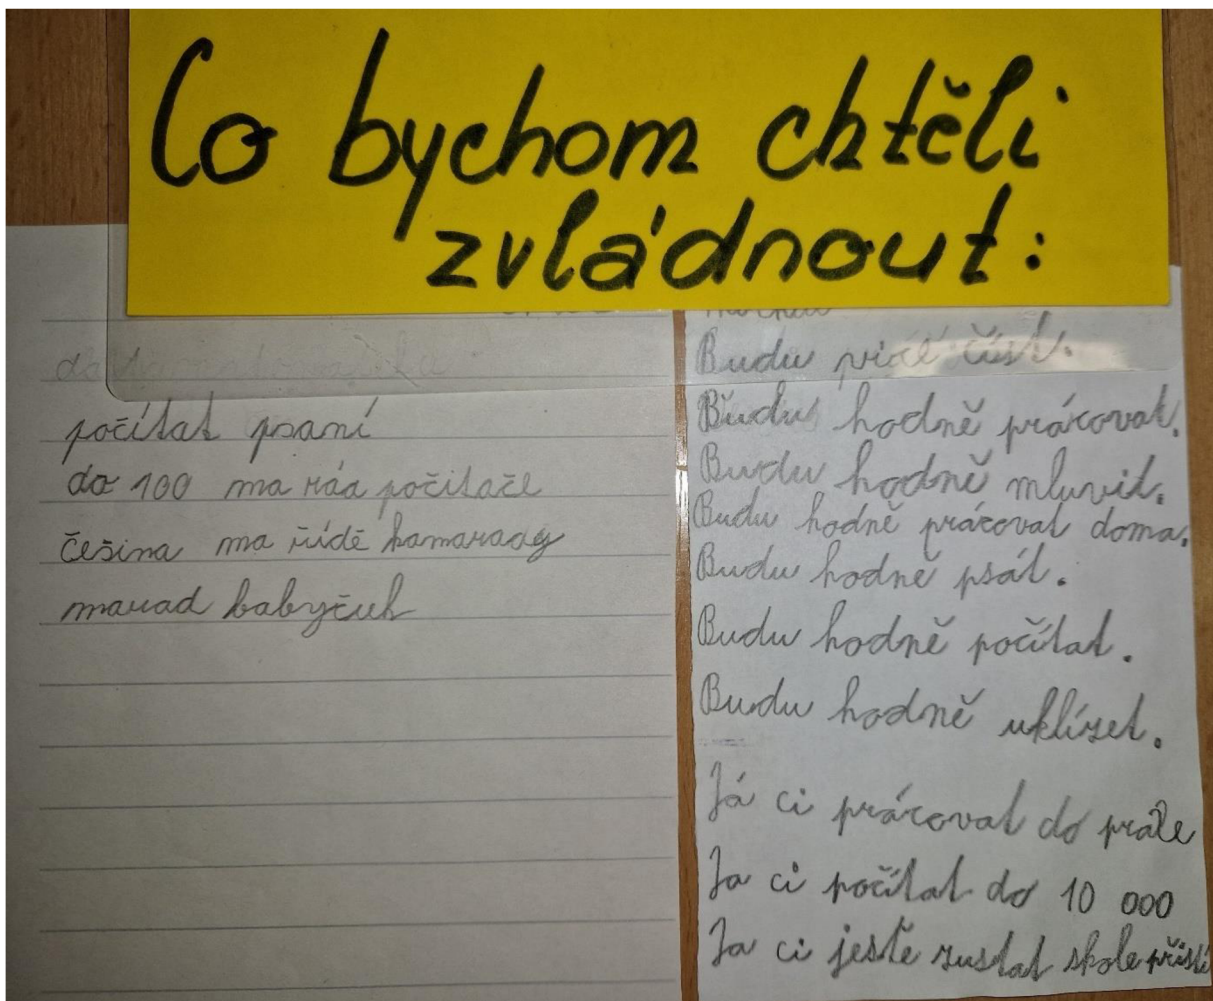 Co bychom chtěli
zvládnout:
počítat psaní
do 100 ma ráa počitače
češina ma řídě kamarady
marad babyčuh
Budu více číst.
Budu hodně prácovat.
Budu hodně mluvit.
Budu hodně prácovat doma.
Budu hodně psát.
Budu hodně počítat.
Budu hodně uklízet.
Já ci prácovat do práce
Ja ci počítat do 10 000
Ja ci ješťe zustat skole příšti